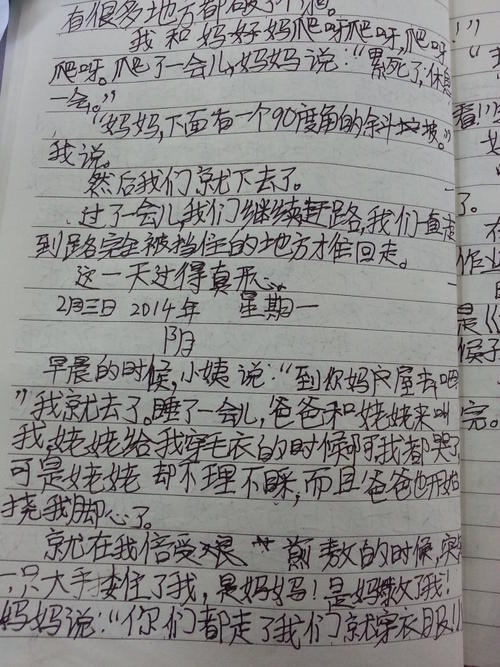 有很多地方都破了个洞。
我和妈好妈爬呀爬呀,爬呀
爬呀。爬了一会儿,妈妈说:“累死了,休息
一会。”
“妈妈,下面有一个90度角的斜坡。”
我说。
然后我们就下去了。
过了一会儿,我们继续赶路,我们一直走
到路完全被挡住的地方才往回走。
这一天过得真开心。
2月三日 2014年 星期一
阴
早晨的时候,小姨说:“到你妈户屋去吧
”我就去了。睡了一会儿,爸爸和姥姥来叫
我,姥姥给我穿毛衣的时候啊,我都哭了
可是姥姥却不理不睬,而且爸爸也开始
挠我脚心了。
就在我倍受煎熬的时候,突然
一只大手搂住了我,是妈妈!是妈救了我!
妈妈说:“你们都走了我们就穿衣服
看
了。
作业
是
侯子
完。